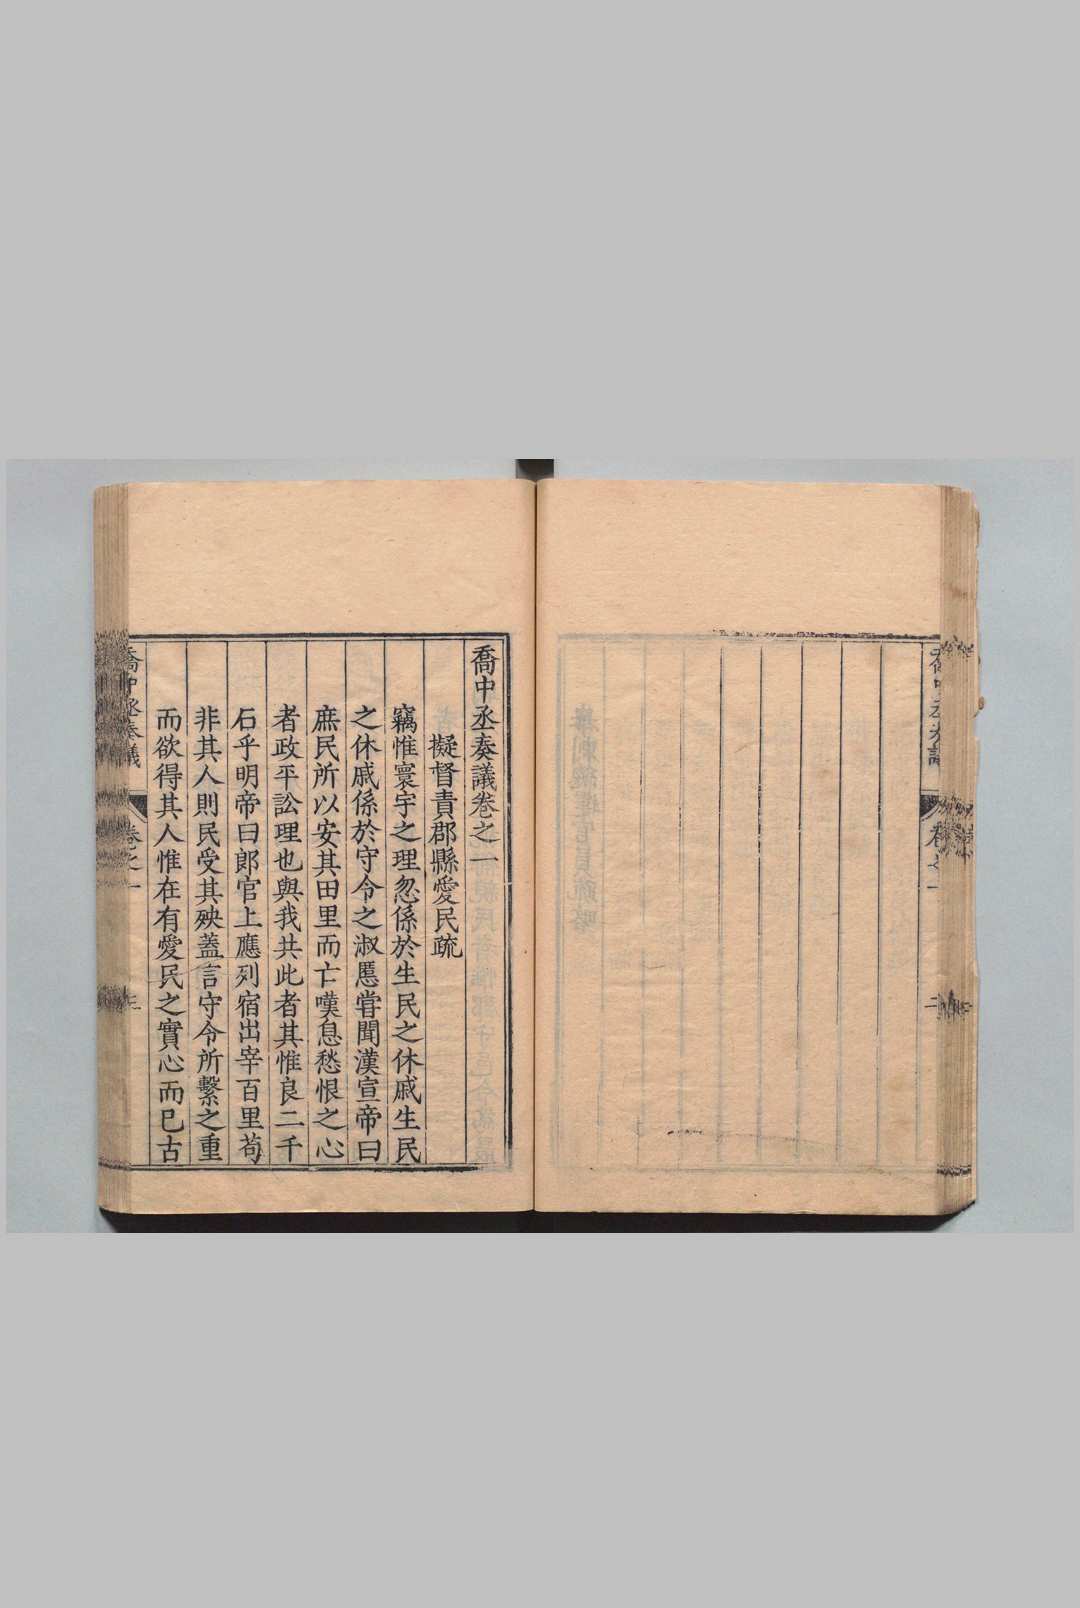 喬中丞奏議卷之一
擬督責郡縣愛民疏
竊惟寰宇之理忽係於生民之休戚生民
之休戚係於守令之淑慝嘗聞漢宣帝曰
庶民所以安其田里而亡嘆息愁恨之心
者政平訟理也與我共此者其惟良二千
石乎明帝曰郎官上應列宿出宰百里苟
非其人則民受其殃蓋言守令所繫之重
而欲得其人惟在有愛民之實心而已古
喬中丞奏議 卷之一